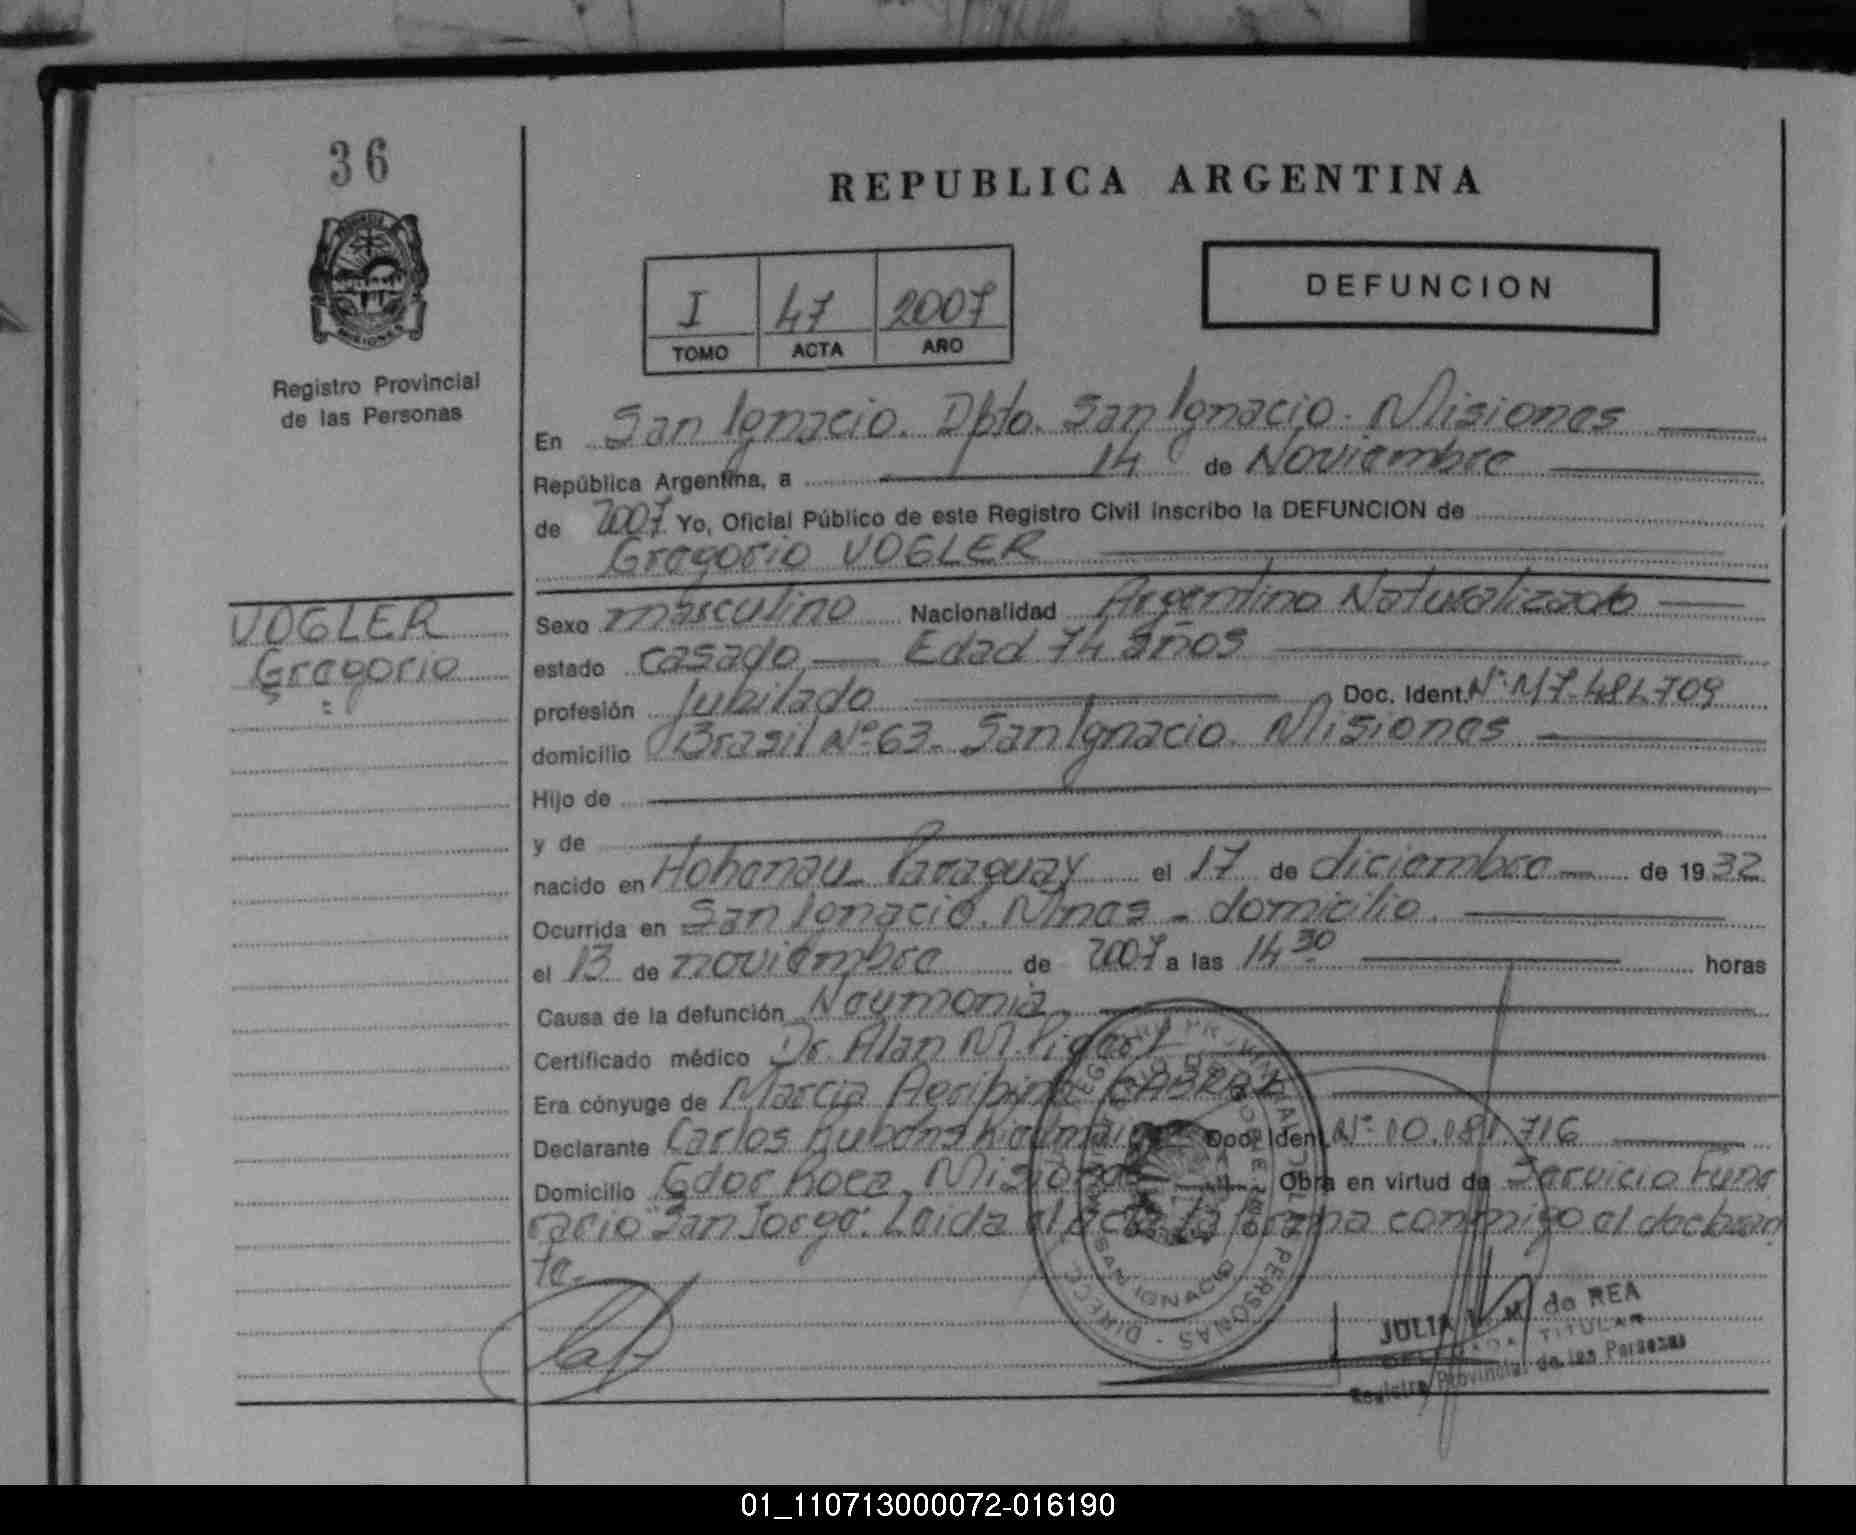 36
REPUBLICA ARGENTINA
DEFUNCION
I 47 2007
TOMO ACTA AÑO
Registro Provincial
de las Personas
En San Ignacio. Dpto. San Ignacio. Misiones
República Argentina, a 14 de Noviembre
de 2007. Yo, Oficial Público de este Registro Civil inscribo la DEFUNCION de
Gregorio VOGLER
VOGLER
Gregorio
Sexo masculino Nacionalidad Argentino Naturalizado
estado casado Edad 74 años
profesión Jubilado Doc. Ident. Nº M7.484.709
domicilio Brasil Nº 63. San Ignacio. Misiones
Hijo de
y de
nacido en Hohenau Paraguay el 17 de diciembre de 1932
Ocurrida en San Ignacio. Mnes - domicilio.
el 13 de noviembre de 2007 a las 14 30 horas
Causa de la defunción Neumonia
Certificado médico Dr. Alan M.
Era cónyuge de Marcia Agripina CABRAL
Declarante Carlos Ruben Doc. Ident. Nº 10.181.716
Domicilio Gdor Roca, Misiones Obra en virtud de Servicio Fune
rario "San Jorge". Leida el acta la firma conmigo el declaran
te.
SAN IGNACIO
JULIA M. de REA
DELEGADA TITULAR
Registro Provincial de las Personas
01_110713000072-016190